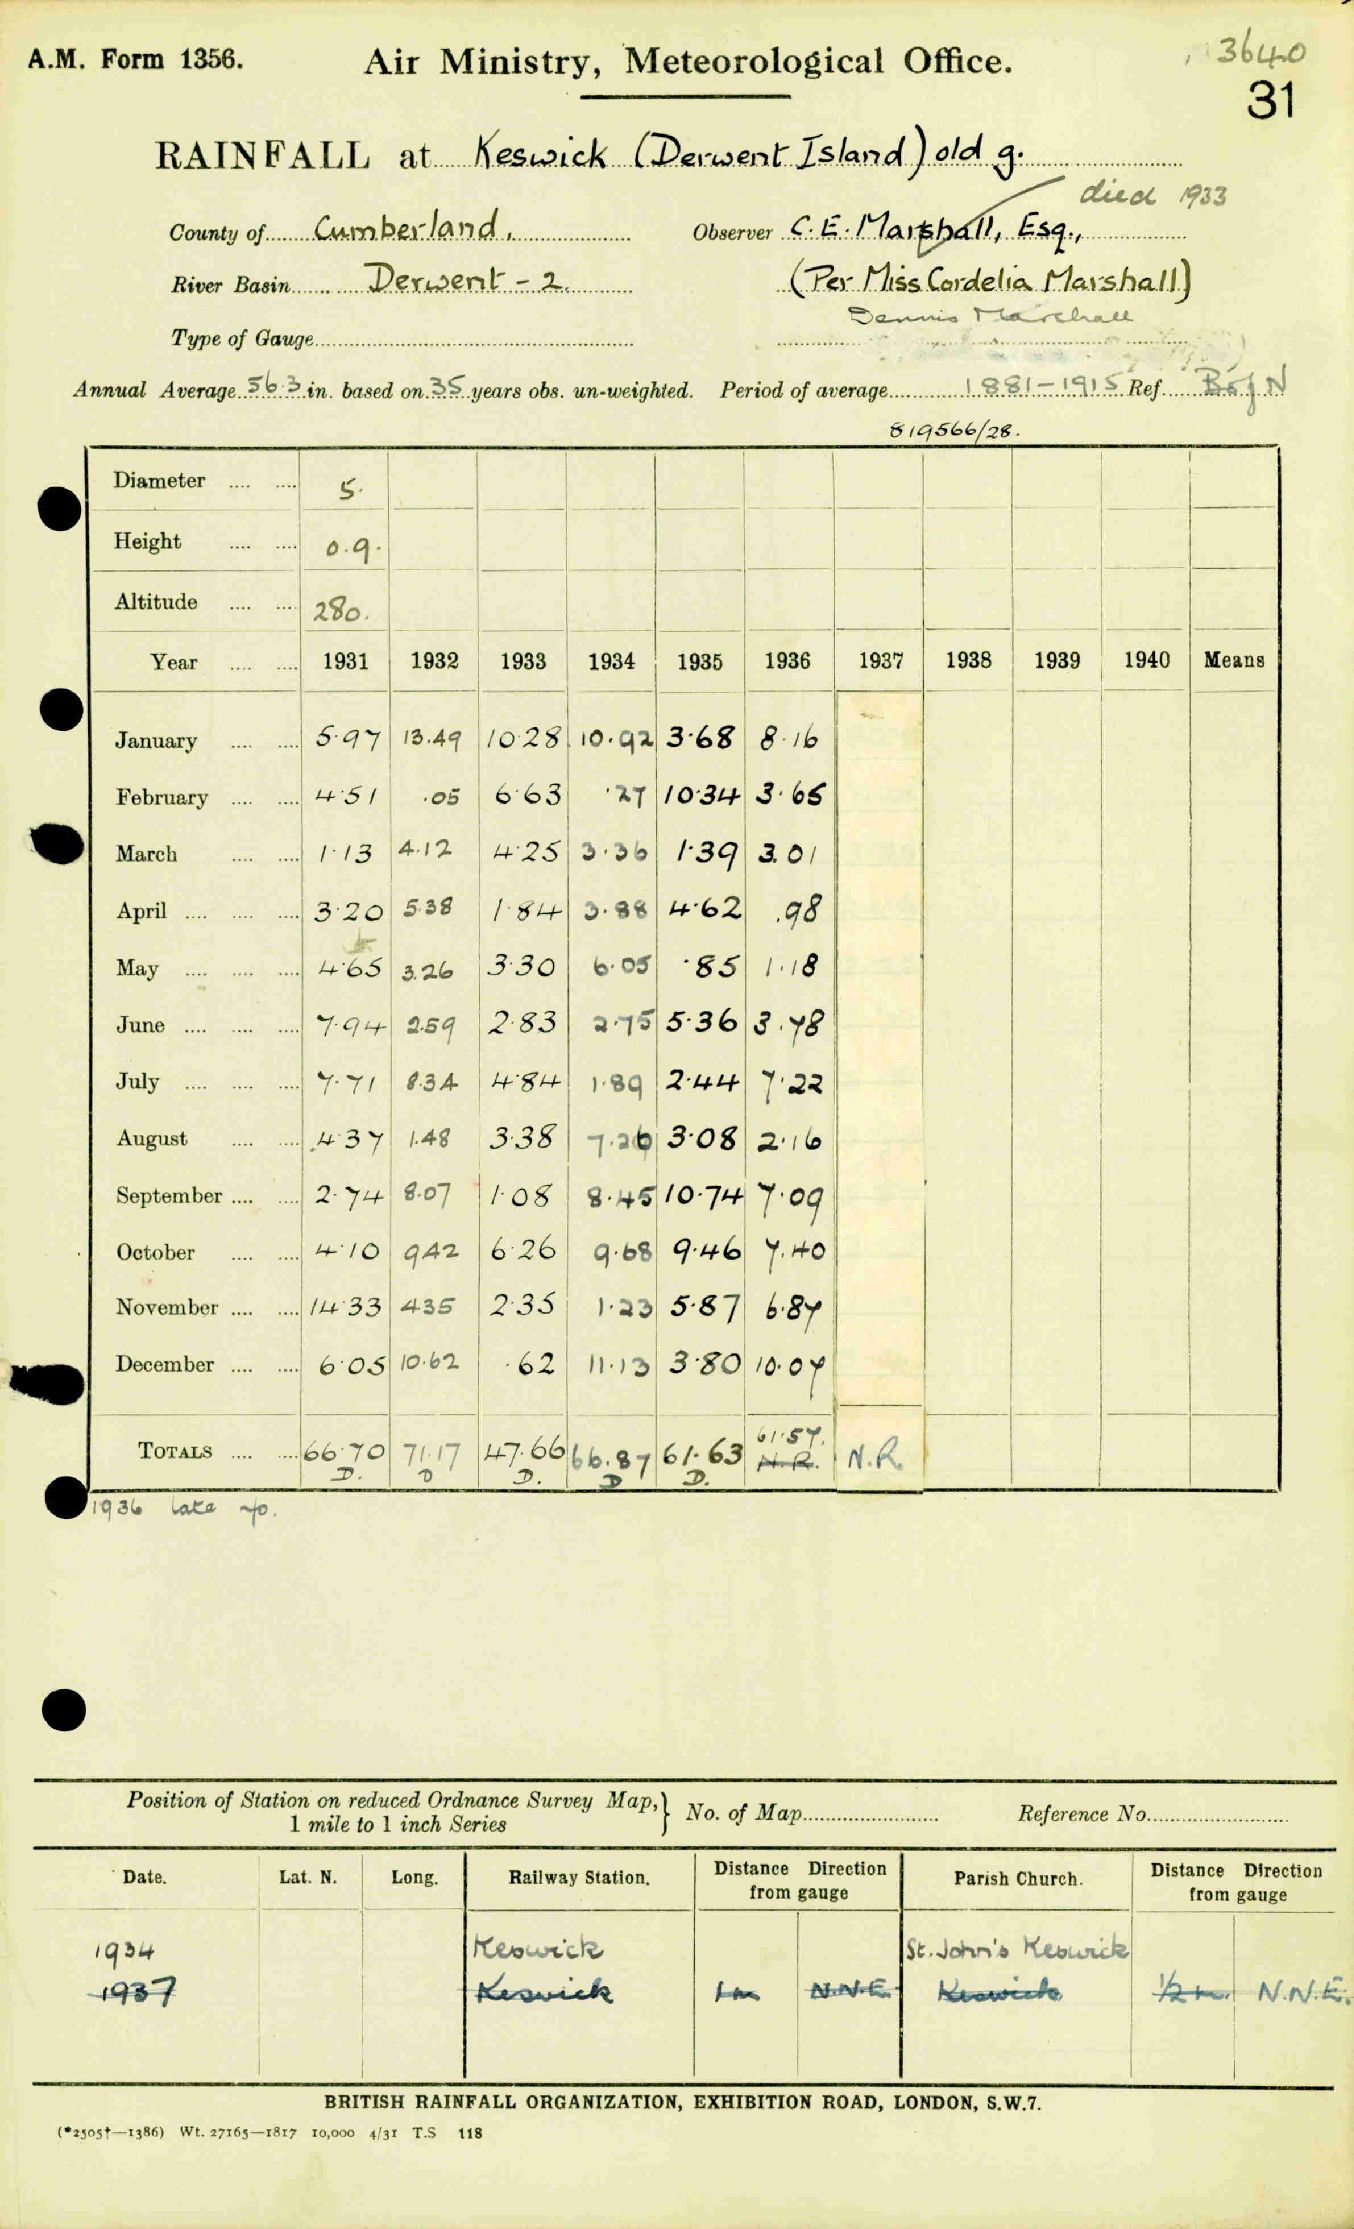 A.M. Form 1356. Air Ministry, Meteorological Office. 3640
31
RAINFALL at Keswick (Derwent Island) old g.
died 1933
County of Cumberland. Observer C. E. Marshall, Esq.,
River Basin Derwent - 2. (Per Miss Cordelia Marshall)
Dennis Marshall
Type of Gauge
Annual Average 56.3 in. based on 35 years obs. un-weighted. Period of average 1881-1915 Ref. B of N
819566/28.
Diameter .... .... 5.
Height .... .... 0.9.
Altitude .... .... 280.
Year .... .... 1931 1932 1933 1934 1935 1936 1937 1938 1939 1940 Means
January .... .... 5.97 13.49 10.28 10.92 3.68 8.16
February .... .... 4.51 .05 6.63 .27 10.34 3.65
March .... .... 1.13 4.12 4.25 3.36 1.39 3.01
April .... .... .... 3.20 5.38 1.84 3.88 4.62 .98
May .... .... .... 4.65 3.26 3.30 6.05 .85 1.18
June .... .... .... 7.94 2.59 2.83 2.75 5.36 3.78
July .... .... .... 7.71 8.34 4.84 1.89 2.44 7.22
August .... .... 4.37 1.48 3.38 7.26 3.08 2.16
September .... .... 2.74 8.07 1.08 8.45 10.74 7.09
October .... .... 4.10 9.42 6.26 9.68 9.46 7.40
November .... .... 14.33 4.35 2.35 1.23 5.87 6.87
December .... .... 6.05 10.62 .62 11.13 3.80 10.07
61.57.
TOTALS .... .... 66.70 71.17 47.66 66.87 61.63 N.R. N.R.
D. D D. D D.
1936 late
Position of Station on reduced Ordnance Survey Map, } No. of Map Reference No.
1 mile to 1 inch Series
Date. Lat. N. Long. Railway Station. Distance Direction from gauge Parish Church. Distance Direction from gauge
1934 Keswick St. John's Keswick
1937 Keswick 1 m N.N.E. Keswick 1/2 m. N.N.E.
BRITISH RAINFALL ORGANIZATION, EXHIBITION ROAD, LONDON, S.W.7.
(*2505†—1386) Wt. 27165—1817 10,000 4/31 T.S 118